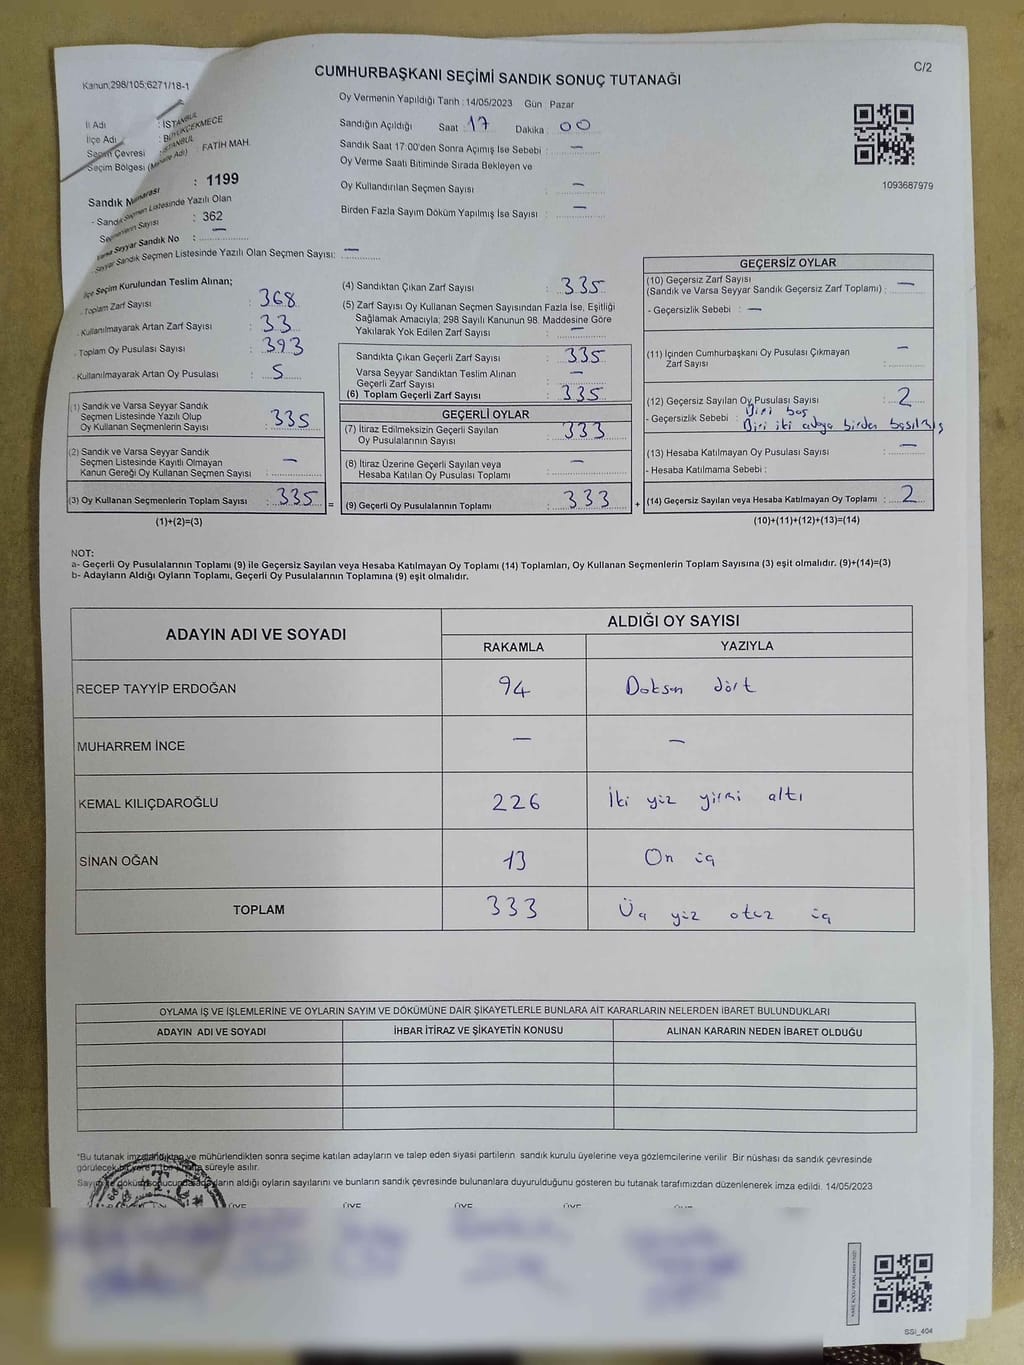 C/2
Kanun;298/105;6271/18-1
CUMHURBAŞKANI SEÇİMİ SANDIK SONUÇ TUTANAĞI
Oy Vermenin Yapıldığı Tarih : 14/05/2023 Gün Pazar
Sandığın Açıldığı Saat : 17 Dakika : 00
Sandık Saat 17:00'den Sonra Açımış İse Sebebi : —
Oy Verme Saati Bitiminde Sırada Bekleyen ve
Oy Kullandırılan Seçmen Sayısı : —
Birden Fazla Sayım Döküm Yapılmış İse Sayısı : —
1093687979
İl Adı : İSTANBUL
İlçe Adı : BÜYÜKÇEKMECE
Seçim Çevresi : İSTANBUL
Seçim Bölgesi (Mahalle Adı) : FATİH MAH.
Sandık Numarası : 1199
- Sandık Seçmen Listesinde Yazılı Olan
Seçmenlerin Sayısı : 362
Varsa Seyyar Sandık No : —
- Seyyar Sandık Seçmen Listesinde Yazılı Olan Seçmen Sayısı: —
İlçe Seçim Kurulundan Teslim Alınan;
- Toplam Zarf Sayısı : 368
- Kullanılmayarak Artan Zarf Sayısı : 33
- Toplam Oy Pusulası Sayısı : 393
- Kullanılmayarak Artan Oy Pusulası : 5
(1) Sandık ve Varsa Seyyar Sandık
Seçmen Listesinde Yazılı Olup
Oy Kullanan Seçmenlerin Sayısı : 335
(2) Sandık ve Varsa Seyyar Sandık
Seçmen Listesinde Kayıtlı Olmayan
Kanun Gereği Oy Kullanan Seçmen Sayısı : —
(3) Oy Kullanan Seçmenlerin Toplam Sayısı : 335
(1)+(2)=(3)
=
(4) Sandıktan Çıkan Zarf Sayısı : 335
(5) Zarf Sayısı Oy Kullanan Seçmen Sayısından Fazla İse, Eşitliği
Sağlamak Amacıyla; 298 Sayılı Kanunun 98. Maddesine Göre
Yakılarak Yok Edilen Zarf Sayısı : —
Sandıkta Çıkan Geçerli Zarf Sayısı : 335
Varsa Seyyar Sandıktan Teslim Alınan
Geçerli Zarf Sayısı : —
(6) Toplam Geçerli Zarf Sayısı : 335
GEÇERLİ OYLAR
(7) İtiraz Edilmeksizin Geçerli Sayılan
Oy Pusulalarının Sayısı : 333
(8) İtiraz Üzerine Geçerli Sayılan veya
Hesaba Katılan Oy Pusulası Toplamı : —
(9) Geçerli Oy Pusulalarının Toplamı : 333
+
GEÇERSİZ OYLAR
(10) Geçersiz Zarf Sayısı
(Sandık ve Varsa Seyyar Sandık Geçersiz Zarf Toplamı) : —
- Geçersizlik Sebebi : —
(11) İçinden Cumhurbaşkanı Oy Pusulası Çıkmayan
Zarf Sayısı : —
(12) Geçersiz Sayılan Oy Pusulası Sayısı : 2
- Geçersizlik Sebebi : Biri boş
Biri iki adaya birden basılmış
(13) Hesaba Katılmayan Oy Pusulası Sayısı : —
- Hesaba Katılmama Sebebi :
(14) Geçersiz Sayılan veya Hesaba Katılmayan Oy Toplamı : 2
(10)+(11)+(12)+(13)=(14)
NOT:
a- Geçerli Oy Pusulalarının Toplamı (9) ile Geçersiz Sayılan veya Hesaba Katılmayan Oy Toplamı (14) Toplamları, Oy Kullanan Seçmenlerin Toplam Sayısına (3) eşit olmalıdır. (9)+(14)=(3)
b- Adayların Aldığı Oyların Toplamı, Geçerli Oy Pusulalarının Toplamına (9) eşit olmalıdır.
ADAYIN ADI VE SOYADI
ALDIĞI OY SAYISI
RAKAMLA YAZIYLA
RECEP TAYYİP ERDOĞAN 94 Doksan dört
MUHARREM İNCE — —
KEMAL KILIÇDAROĞLU 226 İki yüz yirmi altı
SİNAN OĞAN 13 On üç
TOPLAM 333 Üç yüz otuz üç
OYLAMA İŞ VE İŞLEMLERİNE VE OYLARIN SAYIM VE DÖKÜMÜNE DAİR ŞİKAYETLERLE BUNLARA AİT KARARLARIN NELERDEN İBARET BULUNDUKLARI
ADAYIN ADI VE SOYADI İHBAR İTİRAZ VE ŞİKAYETİN KONUSU ALINAN KARARIN NEDEN İBARET OLDUĞU
*Bu tutanak imzalandıktan ve mühürlendikten sonra seçime katılan adayların ve talep eden siyasi partilerin sandık kurulu üyelerine veya gözlemcilerine verilir Bir nüshası da sandık çevresinde
görülecek bir yere 1 hafta süreyle asılır.
Sayım ve döküm sonucunda adayların aldığı oyların sayılarını ve bunların sandık çevresinde bulunanlara duyurulduğunu gösteren bu tutanak tarafımızdan düzenlenerek imza edildi. 14/05/2023
T.C.
ÜYE ÜYE ÜYE ÜYE ÜYE
SSİ_404